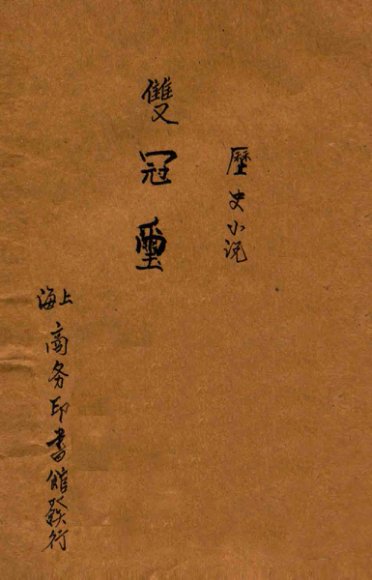 歷史小説
雙冠璽
上海商务印書館發行